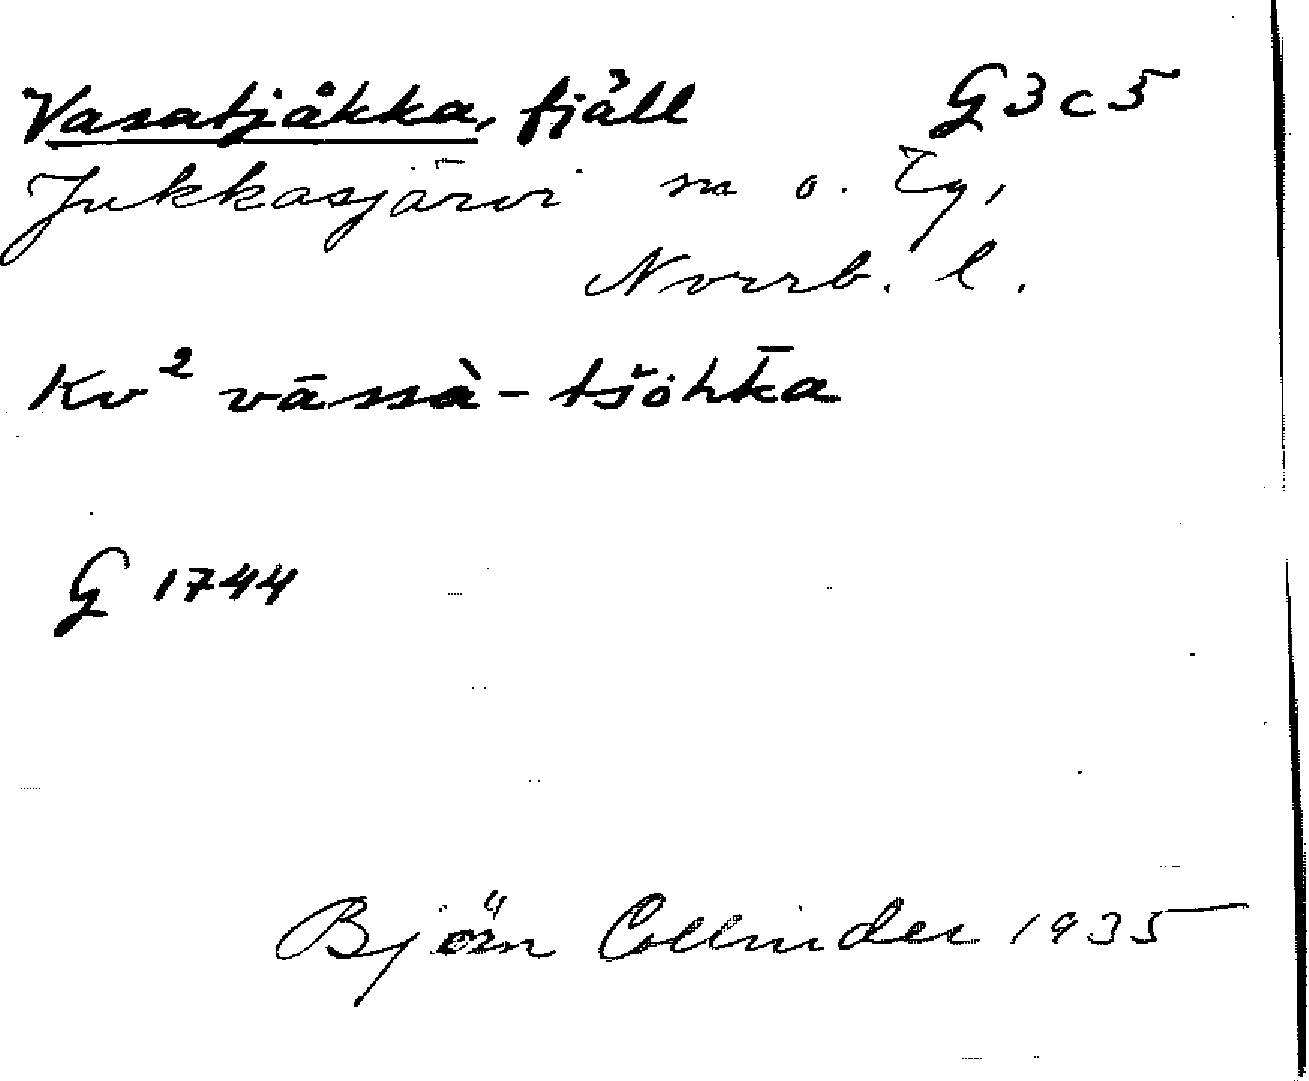 Vasatjåkka, fjäll G3c5
Jukkasjärvi sn o. Tg,
Norrb. l.
Kv² vāssà-tšöhk̄a
G 1744
Björn Collinder 1935